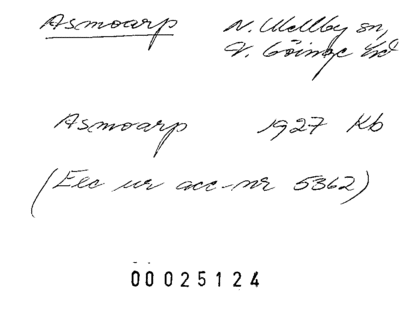 Asmoarp N. Mellby sn,
V. Göinge hd
Asmoarp 1927 Kb
(Exc ur acc-nr 5362)
00025124